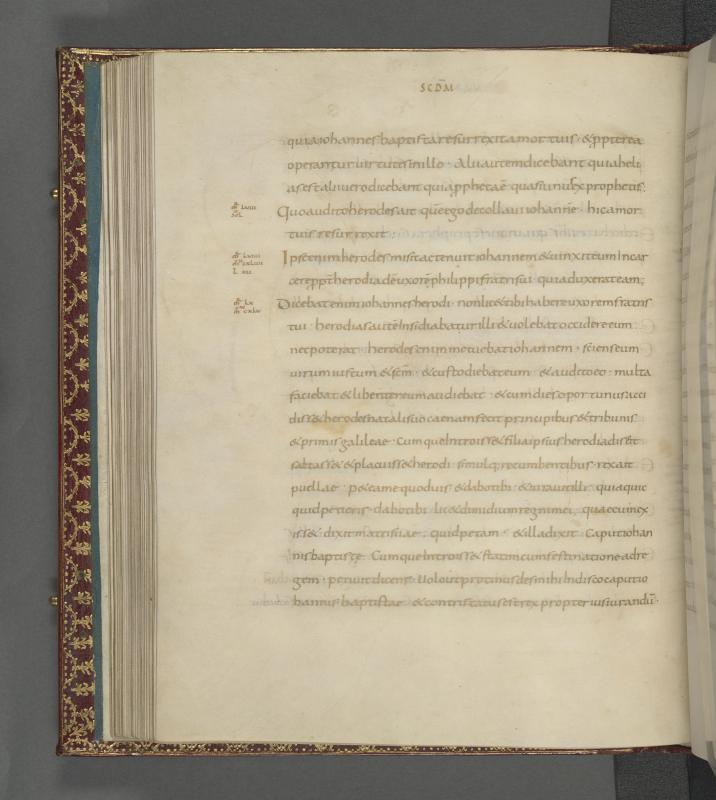 SCDM
quia iohannes baptista resurrexit a mortuis · & ppterea
operantur uirtutes in illo · Alii autem dicebant quia heli
as est alii uero dicebant quia ppheta ē quasi unus ex prophetis·
Quo audito herodes ait quē ego decollaui iohannē hic a mor
tuis resurrexit ·
Ipse enim herodes misit ac tenuit iohannem & uinxit eum in car
cere ppt herodiadē uxorē philippi fratris sui quia duxerat eam;
Dicebat enim iohannes herodi · non lic& tibi habere uxorem fratris
tui · herodias autē insidiabatur illi & uolebat occidere eum
nec poterat · herodes enim metuebat iohannem · sciens eum
uirum iustum & scm · & custodiebat eum · & audito eo · multa
faciebat & libenter eum audiebat · & cum dies oportunus acci
diss& herodes natalis suo caenam fecit principibus & tribunis
& primis galileae · Cumque introiss& filia ipsius herodiadis &
saltass& & placuiss& herodi · simulq; recumbentibus · rex ait
puellae · pete a me quod uis & dabo tibi · & iurauit illi · quia quic
quid petieris dabo tibi · lic& dimidium regni mei · quae cum ex
iss& · dixit matri suae · quid petam · & illa dixit · Caput iohan
nis baptistę · Cumque introiss& statim cum festinatione ad re
gem · petiuit dicens · Uolo ut protinus des mihi in disco caput io
hannis baptistae · & contristatus est rex propter iusiurandū·